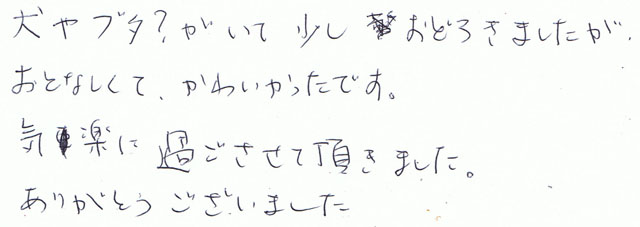 犬やブタ?がいて少しおどろきましたが、
おとなしくて、かわいかったです。
気楽に過ごさせて頂きました。
ありがとうございました